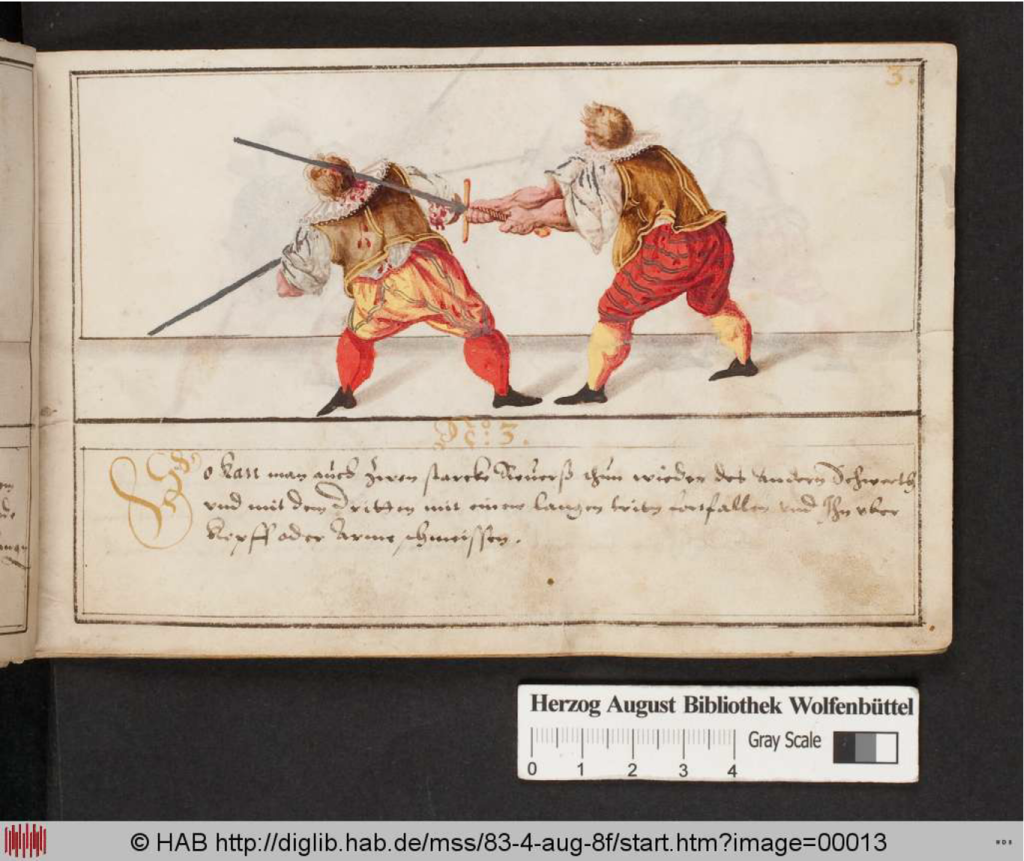 3.
No: 3.
So kan man auch zwen starcke Reuerß thun wieder des Andern Schwerth
vnd mit dem Dritten mit einem langen tritte fortfallen vnd Ihn vber
Kopff oder Arme schmeissen.
Herzog August Bibliothek Wolfenbüttel
0 1 2 3 4 Gray Scale
© HAB http://diglib.hab.de/mss/83-4-aug-8f/start.htm?image=00013